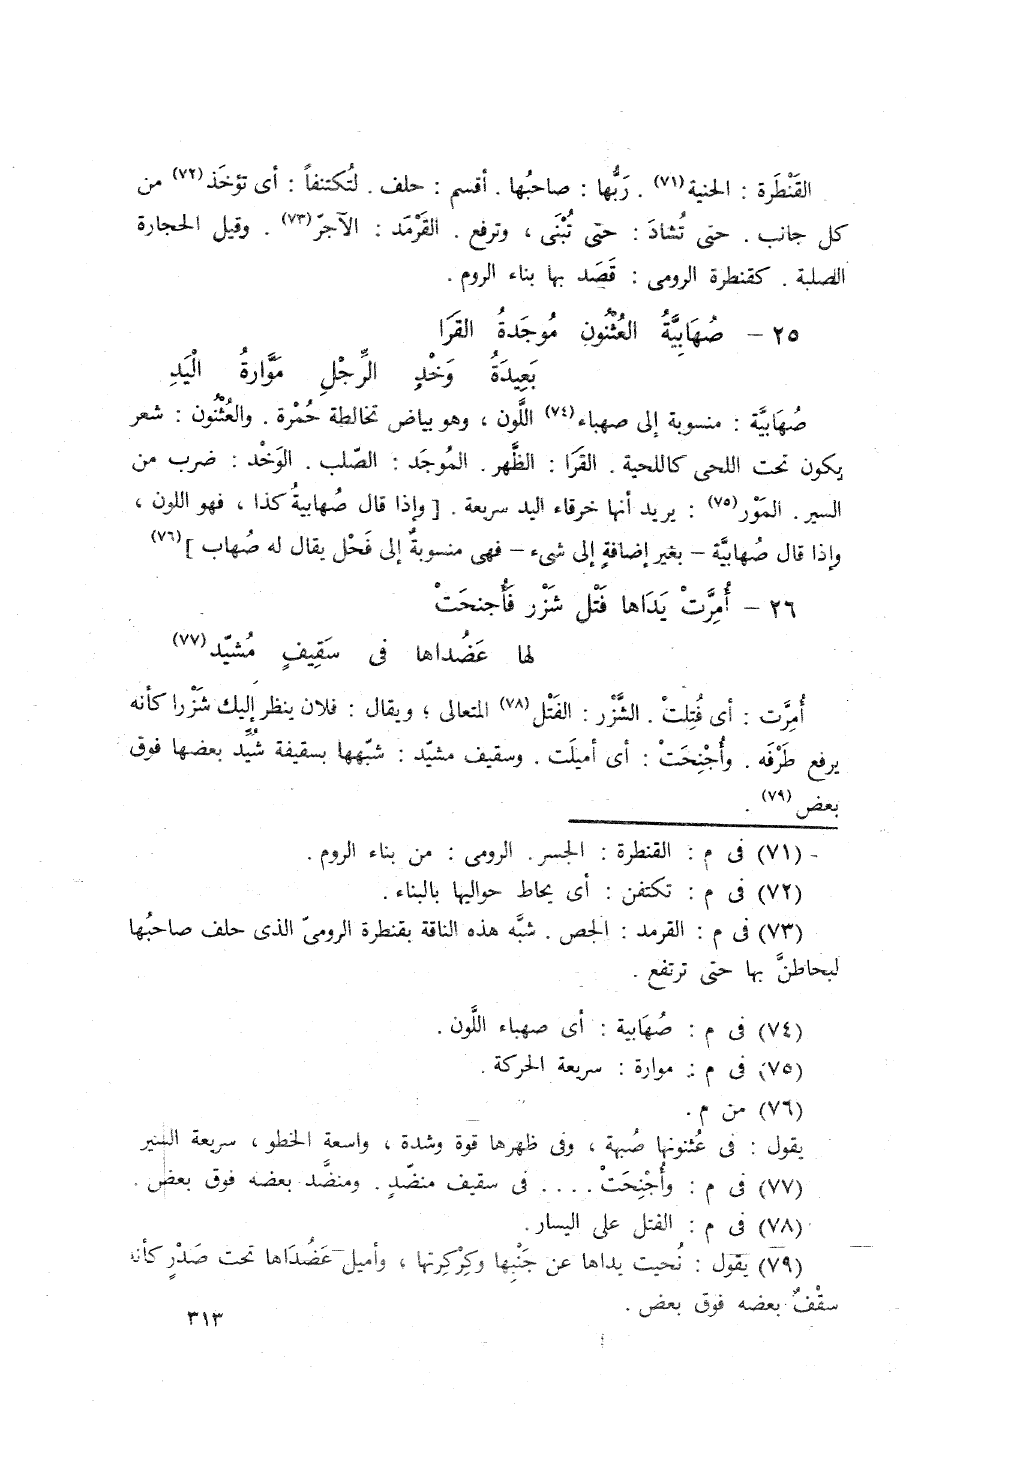 القَنْطَرة : الحنية(٧١) . رَبُّها : صاحبُها . أقسم : حلف . لتُكتنفاً : أى تؤخَذ(٧٢) من
كل جانب . حتى تُشادَ : حتى تُبْنَى ، وترفع . القَرْمَد : الآجرّ(٧٣) . وقيل الحجارة
الصلبة . كقنطرة الرومى : قَصَد بها بناء الروم .
٢٥ – صُهَابِيَّةُ العُثْنُونِ مُوجَدةُ القَرَا
بَعِيدَةُ وَخْدِ الرِّجْلِ مَوَّارةُ الْيَدِ
صُهَابيَّة : منسوبة إلى صهباء(٧٤) اللَّون ، وهو بياض تخالطة حُمْرة . والعُثْنُون : شعر
يكون تحت اللحى كاللحية . القَرَا : الظَّهر . المُوجَد : الصّلب . الوَخْد : ضرب من
السير . المَوْر(٧٥) : يريد أنها خرقاء اليد سريعة . [ وإذا قال صُهابيةُ كذا ، فهو اللون ،
وإذا قال صُهابيَّة – بغير إضافةٍ إلى شىء – فهى منسوبةٌ إلى فَحْل يقال له صُهاب ](٧٦)
٢٦ – أُمِرَّتْ يَدَاها فَتْل شَزْر فَأُجنحَتْ
لها عَضُداها فى سَقِيفٍ مُشيّد(٧٧)
أُمِرَّت : أى فُتِلتْ . الشَّزْر : الفَتْل(٧٨) المتعالى ؛ ويقال : فلان ينظر إليك شَزْرا كأنه
يرفع طَرْفَه . وأُجْنِحَتْ : أى أميلَت . وسقيف مشيّد : شبّهها بسقيفة شُيِّد بعضها فوق
بعض(٧٩) .
(٧١) فى م : القنطرة : الجسر . الرومى : من بناء الروم .
(٧٢) فى م : تكتفن : أى يحاط حواليها بالبناء .
(٧٣) فى م : القرمد : الجص . شبَّه هذه الناقة بقنطرة الرومىّ الذى حلف صاحبُها
ليحاطنَّ بها حتى ترتفع .
(٧٤) فى م : صُهَابية : أى صهباء اللَّون .
(٧٥) فى م : موارة : سريعة الحركة .
(٧٦) من م .
يقول : فى عُثنونها صُهبة ، وفى ظهرها قوة وشدة ، واسعة الخطو ، سريعة السير
(٧٧) فى م : وأُجْنِحَتْ . . . . فى سقيف منضّدٍ . ومنضَّد بعضه فوق بعض .
(٧٨) فى م : الفتل على اليسار .
(٧٩) يقول : نُحيت يداها عن جَنْبِها وكِرْكِرتها ، وأميل عَضُدَاها تحت صَدْرٍ كأنه
سقْفٌ بعضه فوق بعض .
٣١٣